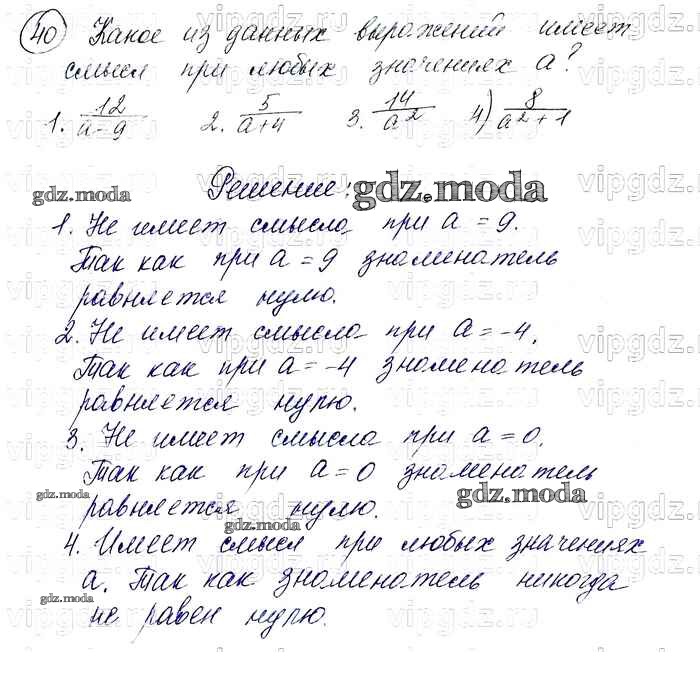 40 Какое из данных выражений имеет
смысл при любых значениях a?
1. 12/(a-9) 2. 5/(a+4) 3. 14/a² 4) 8/(a²+1)
Решение:
gdz.moda
gdz.moda
1. Не имеет смысла при a = 9.
Так как при a = 9 знаменатель
равняется нулю.
2. Не имеет смысла при a = -4.
Так как при a = -4 знаменатель
равняется нулю.
3. Не имеет смысла при a = 0.
Так как при a = 0 знаменатель
gdz.moda
gdz.moda
равняется нулю.
gdz.moda
4. Имеет смысл при любых значениях
a. Так как знаменатель никогда
gdz.moda
не равен нулю.
vipgdz.ru